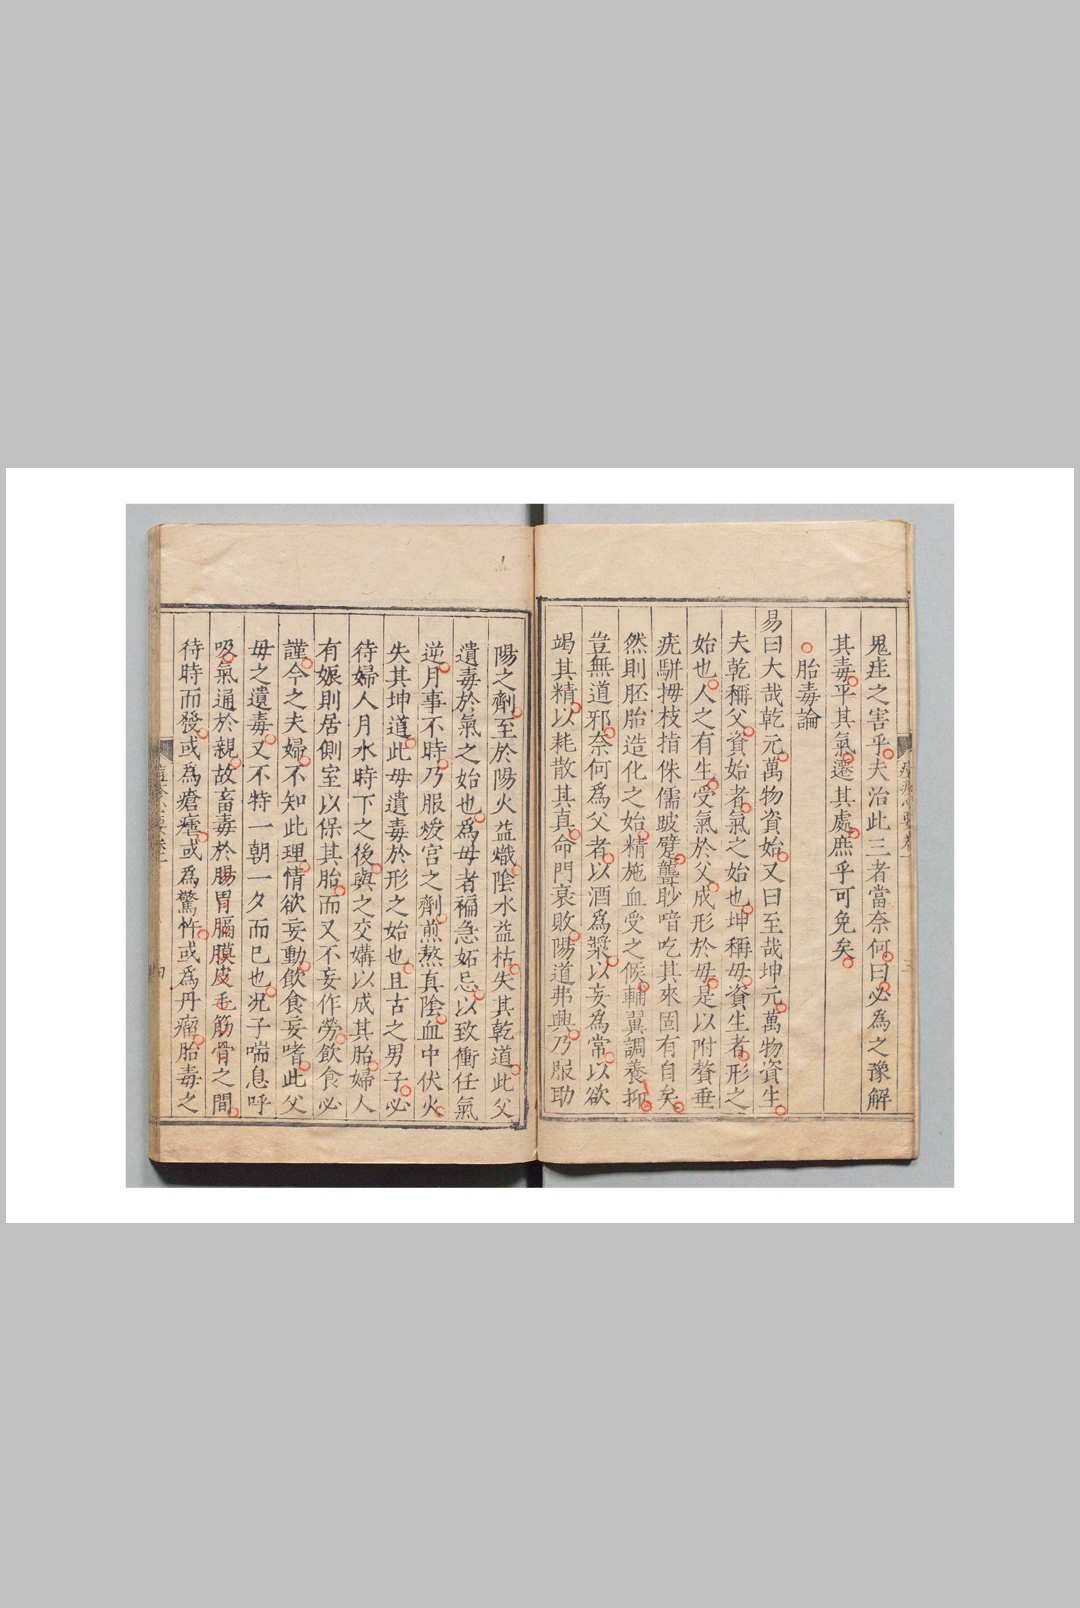 鬼疰之害乎夫治此三者當奈何曰必為之豫解
其毒平其氣遷其處庶乎可免矣
胎毒論
易曰大哉乾元萬物資始又曰至哉坤元萬物資生
夫乾稱父資始者氣之始也坤稱毋資生者形之
始也人之有生受氣於父成形於毋是以附贅垂
疣駢拇枝指侏儒跛躄聾眇喑吃其來固有自矣
然則胚胎造化之始精施血受之候輔翼調養抑
豈無道邪奈何為父者以酒為漿以妄為常以欲
竭其精以耗散其真命門衰敗陽道弗興乃服助
陽之劑至於陽火益熾陰水益枯失其乾道此父
遺毒於氣之始也為毋者褊急妬忌以致衝任氣
逆月事不時乃服煖宮之劑煎熬真陰血中伏火
失其坤道此毋遺毒於形之始也且古之男子必
待婦人月水時下之後與之交媾以成其胎婦人
有娠則居側室以保其胎而又不妄作勞飲食必
謹今之夫婦不知此理情欲妄動飲食妄嗜此父
毋之遺毒又不特一朝一夕而已也况子喘息呼
吸氣通於親故畜毒於腸胃膈膜皮毛筋骨之間
待時而發或為瘡癗或為驚忤或為丹瘤胎毒之
四